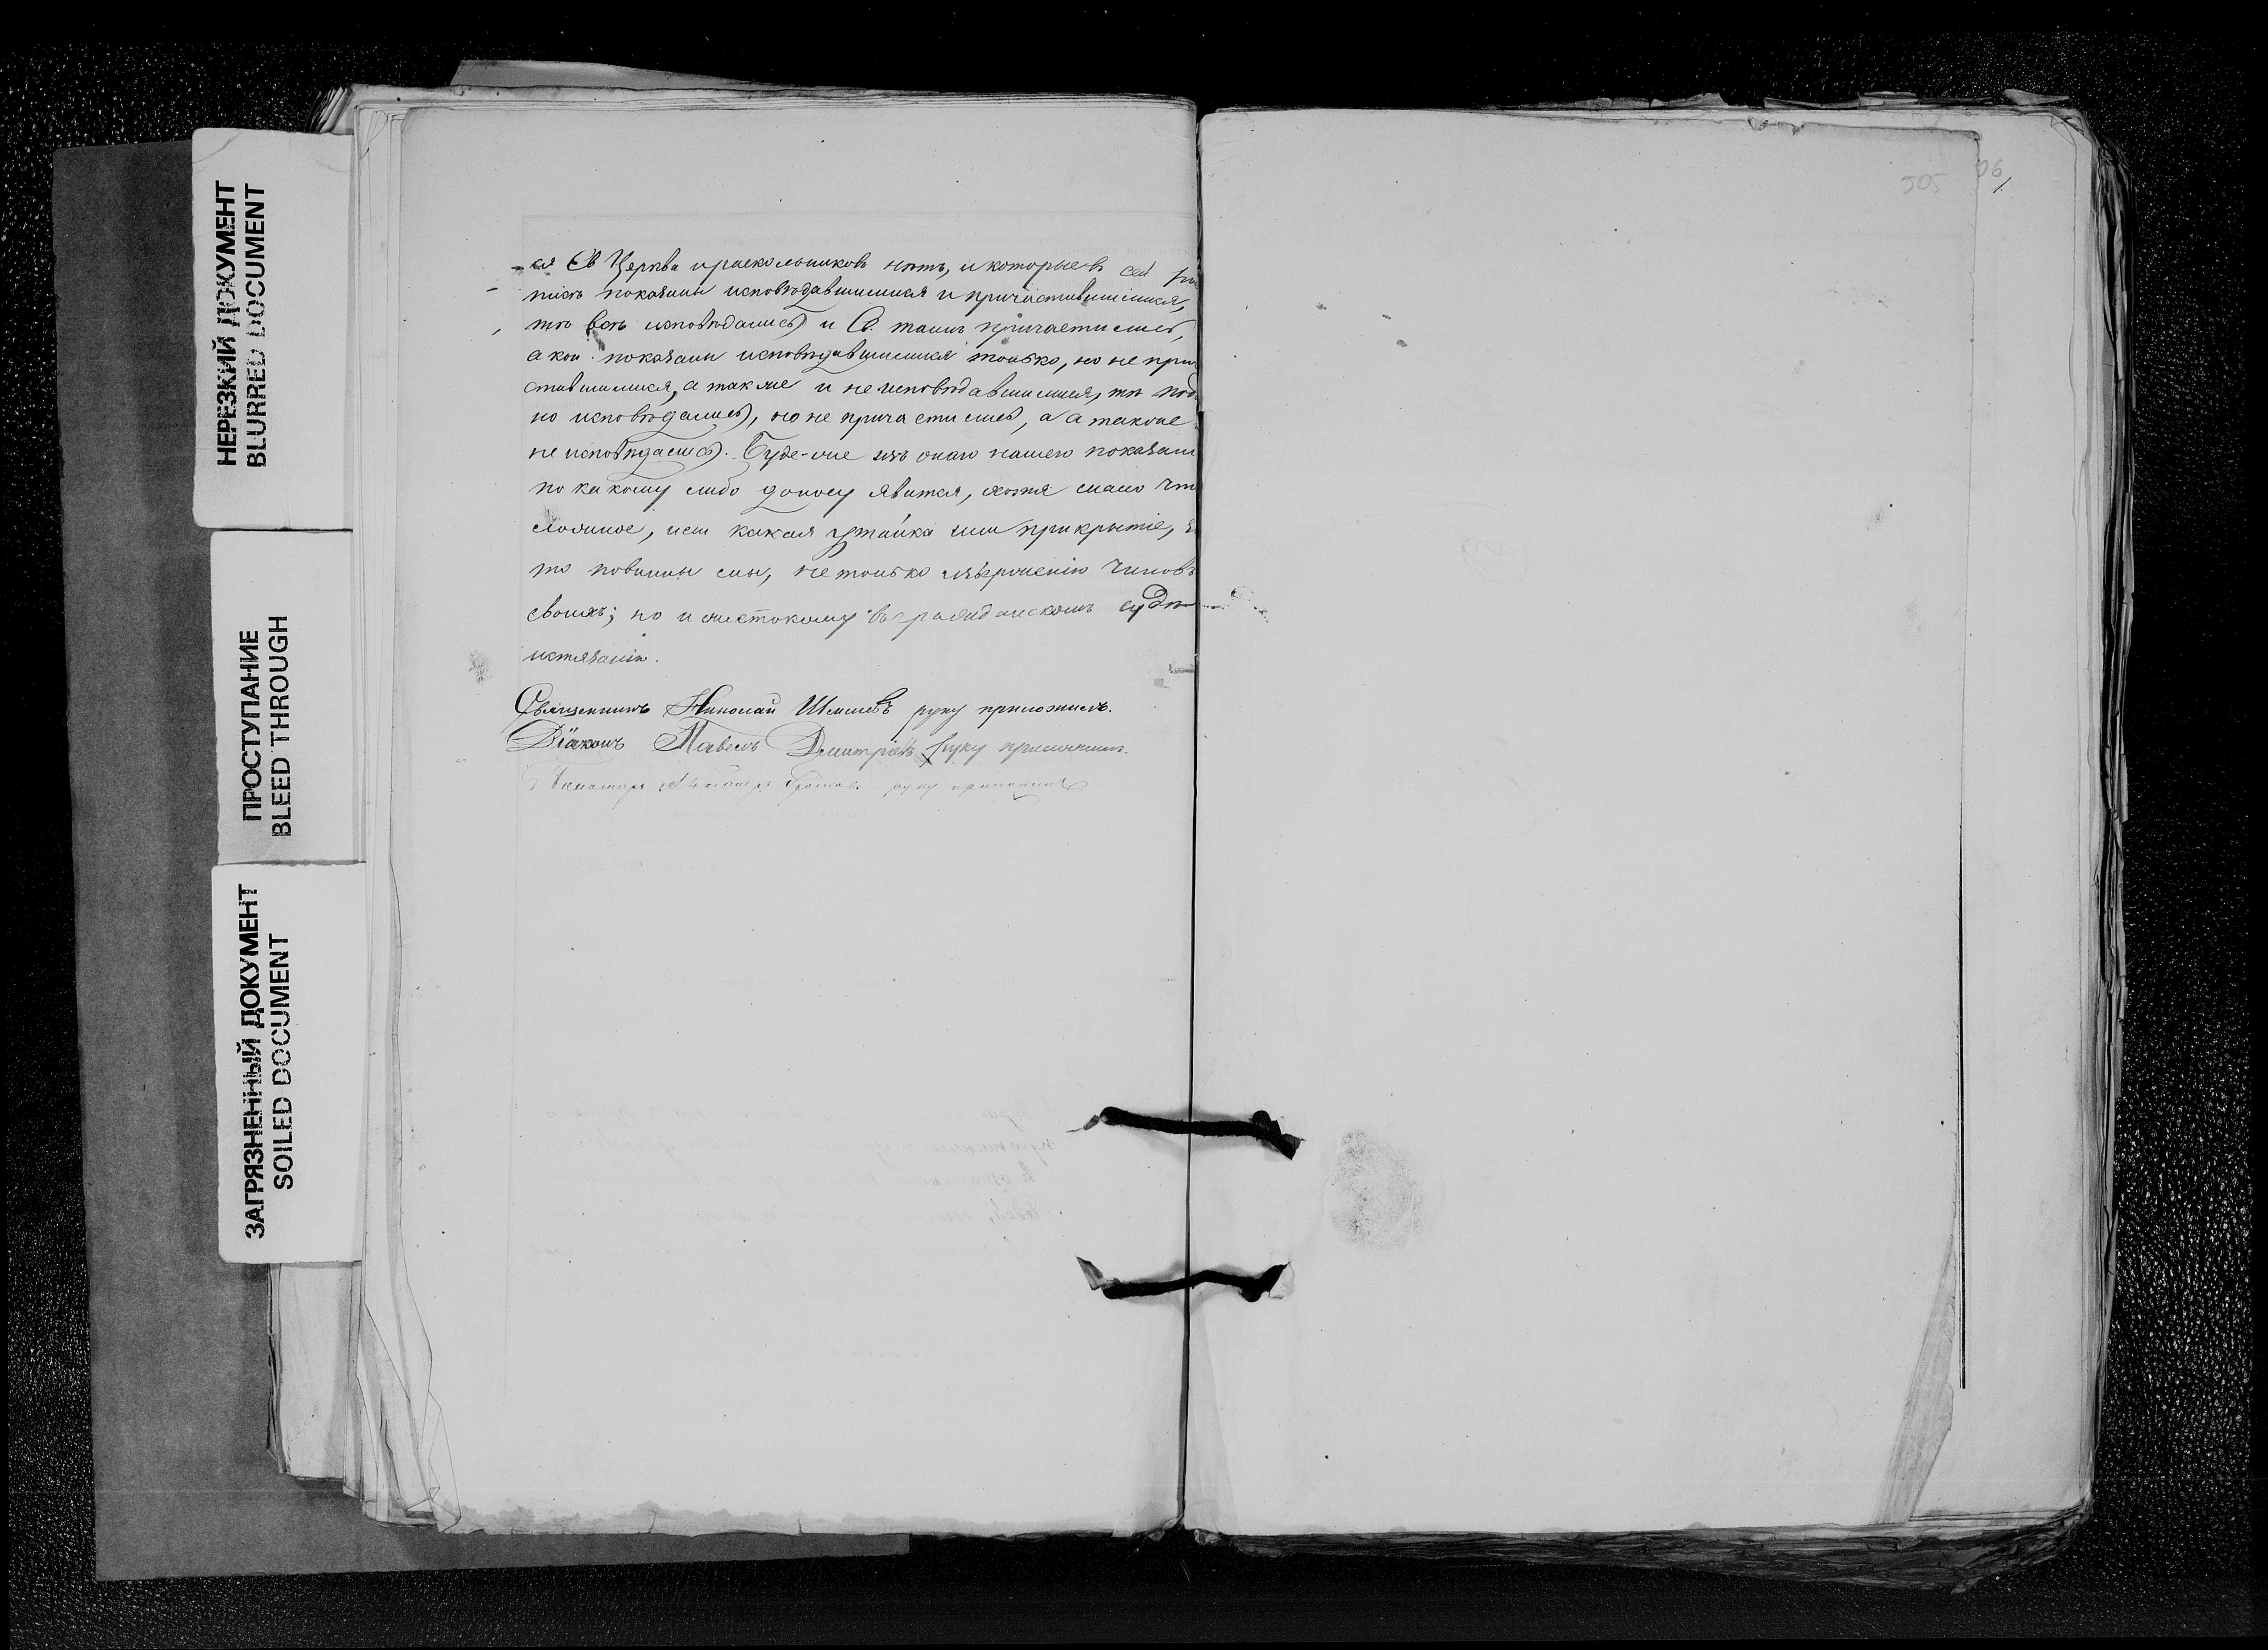 НЕРЕЗКИЙ ДОКУМЕНТ
BLURRED DOCUMENT
ПРОСТУПАНИЕ
BLEED THROUGH
ЗАГРЯЗНЕННЫЙ ДОКУМЕНТ
SOILED DOCUMENT
505 06
ся Св Церкви и раскольниковъ нѣтъ, и которые въ сей рос
писѣ показаны исповѣдавшимися и причастившимися,
тѣ всѣ исповѣдались и Св. таинъ причастились,
а кои показаны исповѣдавшимися только, но не при
ставшимися, а также и не исповѣдавшимися, тѣ под
но исповѣдались, но не причастились, а а также
не исповѣдались. Буде-же изъ онаго нашего показан
по какому либо доносу явится, хотя мало что
ложное, или какая утайка или прикрытіе, з
то повинны мы, не только изверженію чиновъ
своихъ; но и жестокому въ гражданскомъ судѣ
истязанію.
Священникъ Николай руку приложилъ.
Діаконъ Павелъ Дмитріевъ руку приложилъ.
руку приложилъ